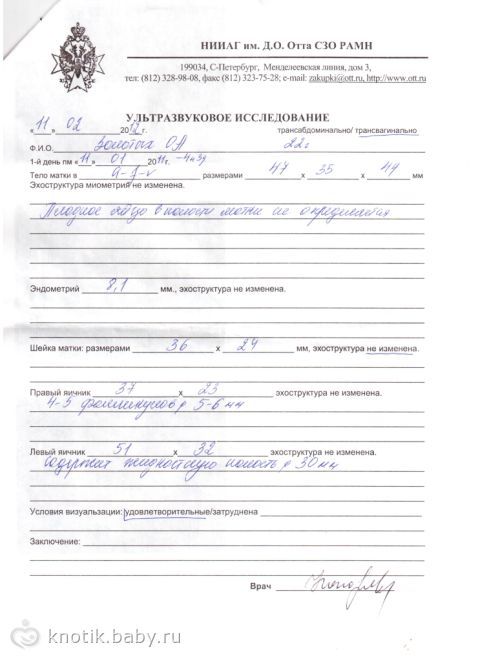 НИИАГ им. Д.О. Отта СЗО РАМН
199034, С-Петербург, Менделеевская линия, дом 3,
тел: (812) 328-98-08, факс (812) 323-75-28; e-mail: zakupki@ott.ru, http://www.ott.ru
УЛЬТРАЗВУКОВОЕ ИССЛЕДОВАНИЕ
« 11 » 02 2012 г. трансабдоминально/ трансвагинально
Ф.И.О. ОА 22г
1-й день пм « 11 » 01 2011г.
Тело матки в a-f-v размерами 47 х 35 х 44 мм
Эхоструктура миометрия не изменена.
Плодное яйцо в полости матки не определяется
Эндометрий 8,1 мм., эхоструктура не изменена.
Шейка матки: размерами 36 х 24 мм, эхоструктура не изменена.
Правый яичник 37 х 23 эхоструктура не изменена.
4-5 фолликулов d 5-6 мм
Левый яичник 51 х 32 эхоструктура не изменена.
содержит жидкостную полость d 30 мм
Условия визуальзации: удовлетворительные/затруднена
Заключение:
Врач
knotik.baby.ru